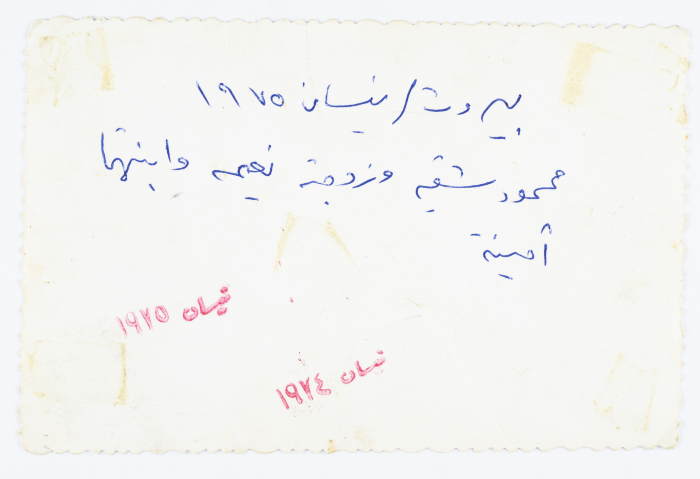 بيروت / نيسان ١٩٧٥
محمود شقير وزوجته نعيمه وابنتهما
أمينة
نيسان ١٩٧٥
نيسان ١٩٧٤